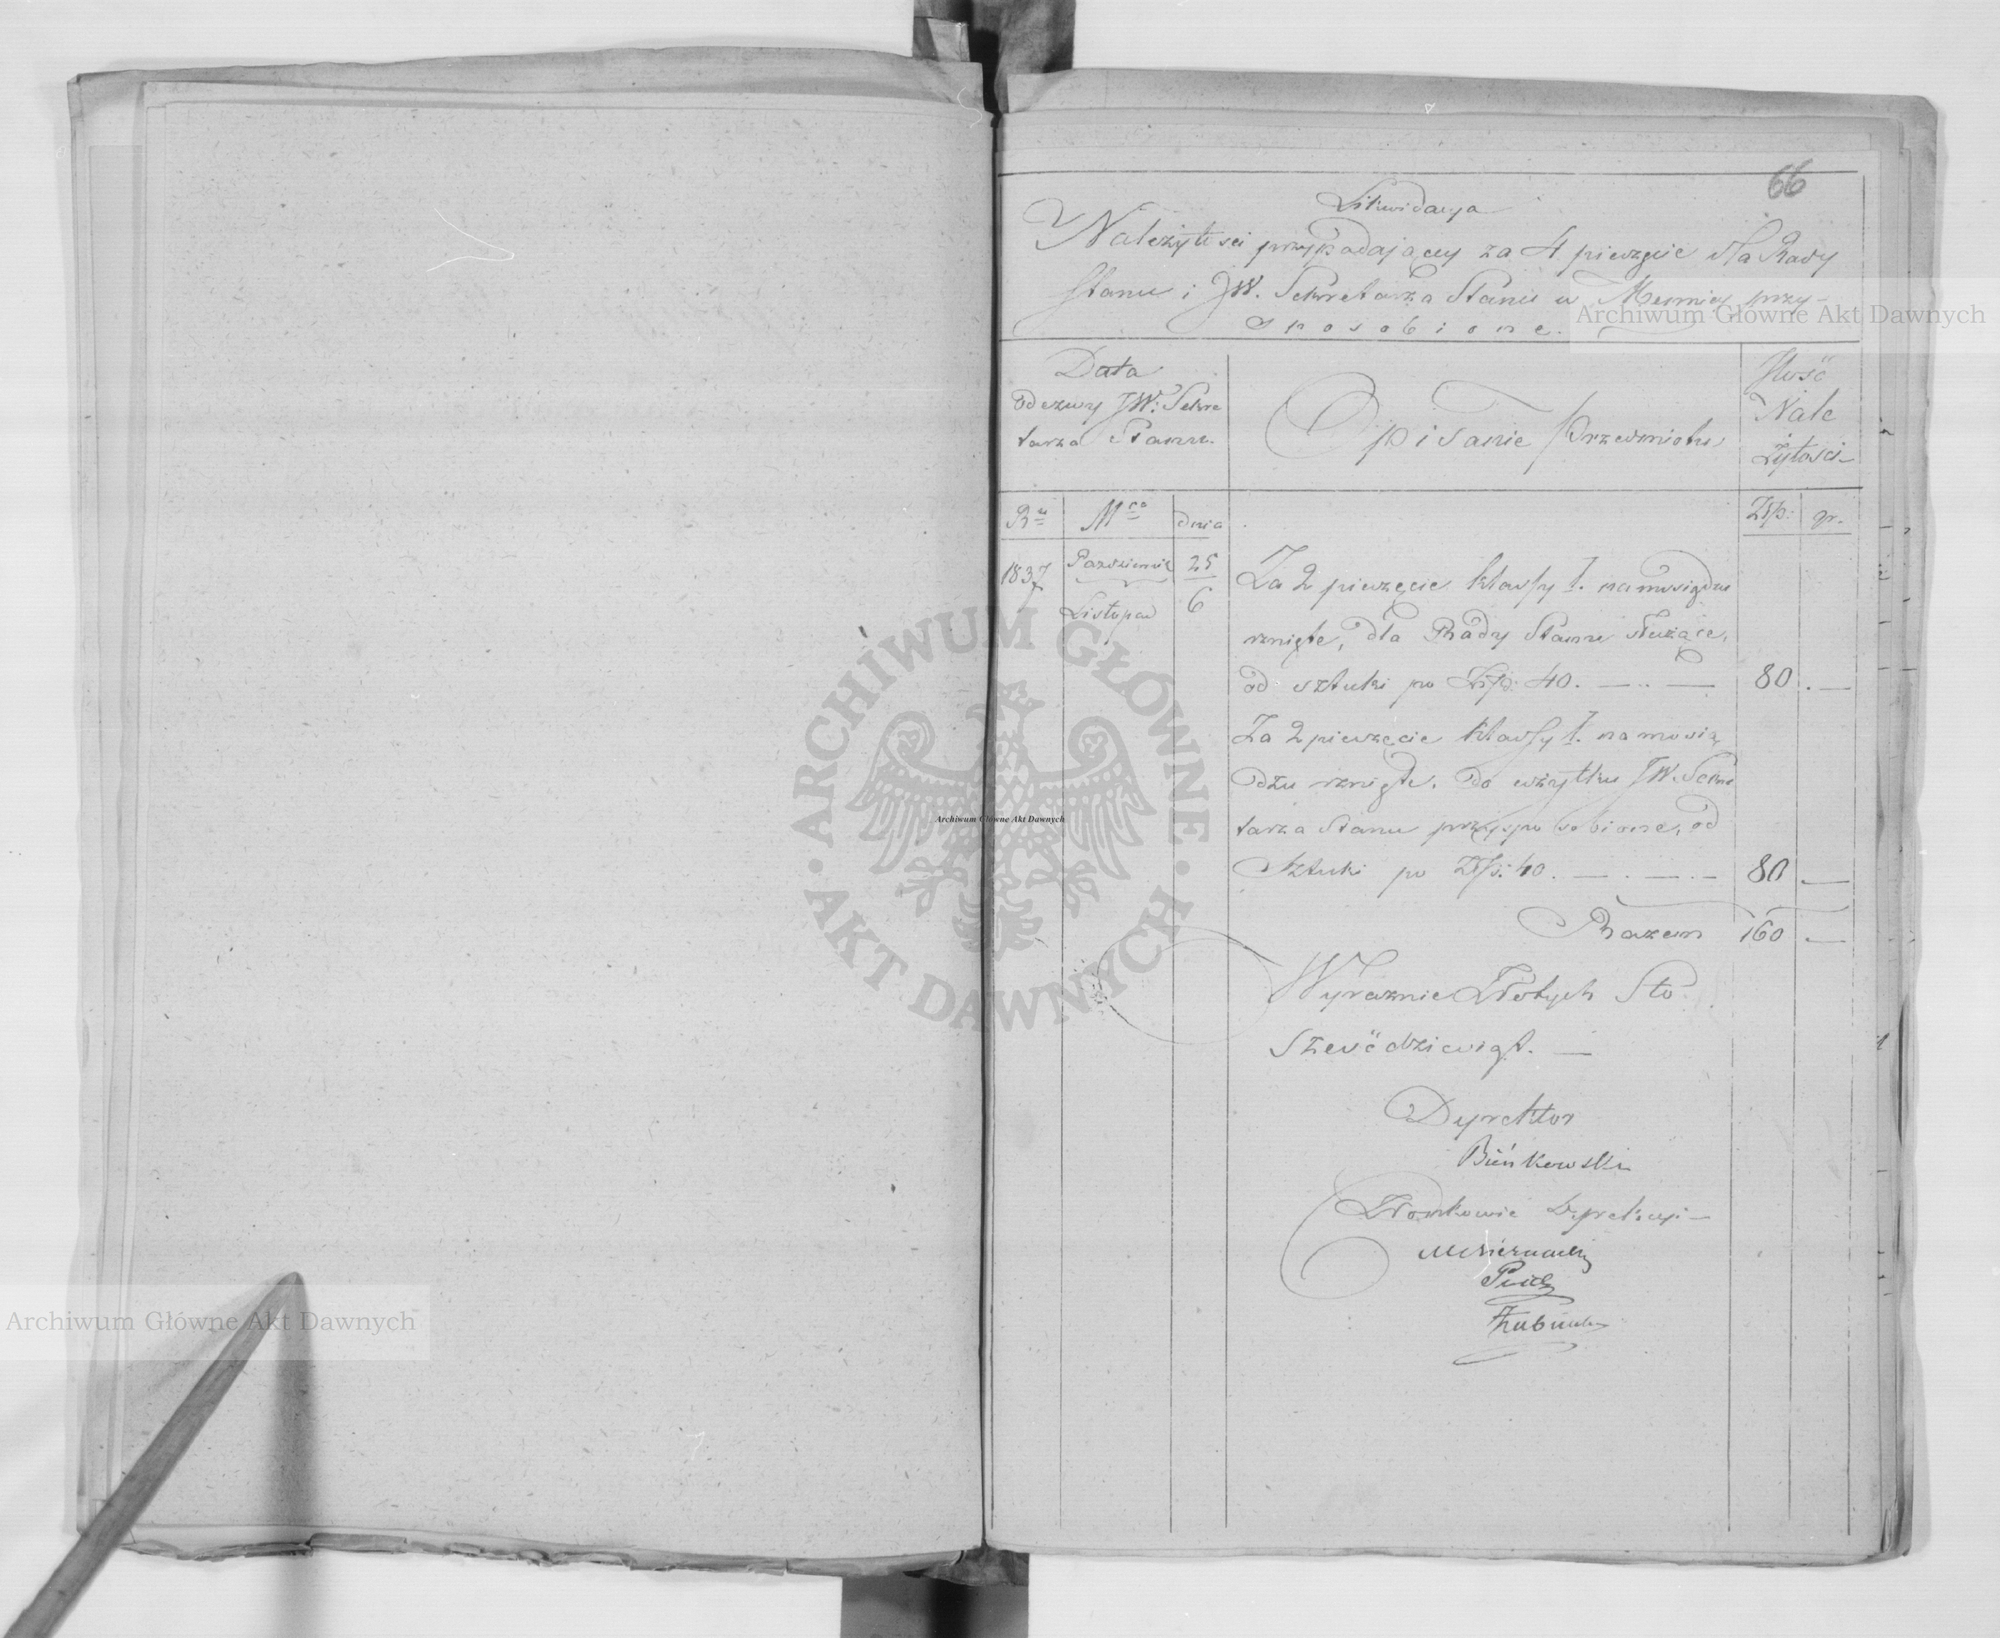 66
Likwidacya
Należytości przypadającey za 4 pieczęcie dla Rady
Stanu i JW. Sekretarza Stanu w Mennicy przy-
sposobione.
Data
odezwy JW: Sekre
tarza Stanu.
Opisanie Przedmiotu
Ilość
Nale
żytości
Ru Mca dnia
Złp: gr.
1837 Październik 25
Listopad 6
Za 2 pieczęcie klassy I. na mosiądzu
rznięte, dla Rady Stanu służące,
od sztuki po Złp: 40. — .. — 80 . —
Za 2 pieczęcie klassy I. na mosią
dzu rznięte, do użytku JW. Sekre
tarza Stanu przysposobione, od
Sztuki po Złp: 40. — . — . — 80 —
Razem 160 . —
Wyraźnie Złotych Sto
Sześćdziesiąt. —
Dyrektor
Bieńkowski
Członkowie Dyrekcyi
Archiwum Główne Akt Dawnych
Archiwum Główne Akt Dawnych
Archiwum Główne Akt Dawnych
ARCHIWUM GŁÓWNE · AKT DAWNYCH ·